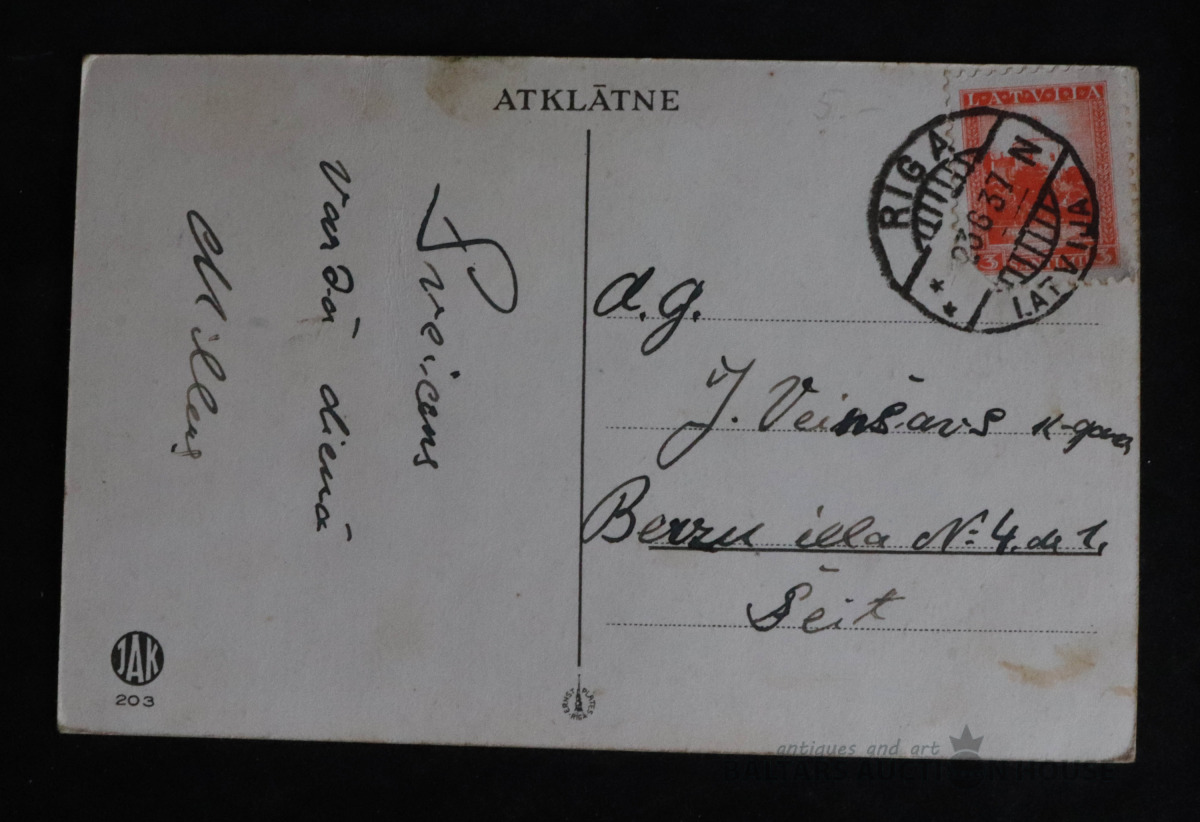 ATKLĀTNE
LATVIJA
3 3
RIGA N
23 6 37
LATVIJA
Sveicens
Vārda dienā
d. g.
J. Veinšavs k-gam
Berzu illa № 4. dz 1.
Šeit
JAK
203
ERNST PLATES RIGA
antiques and art
BALTARS AUCTION HOUSE